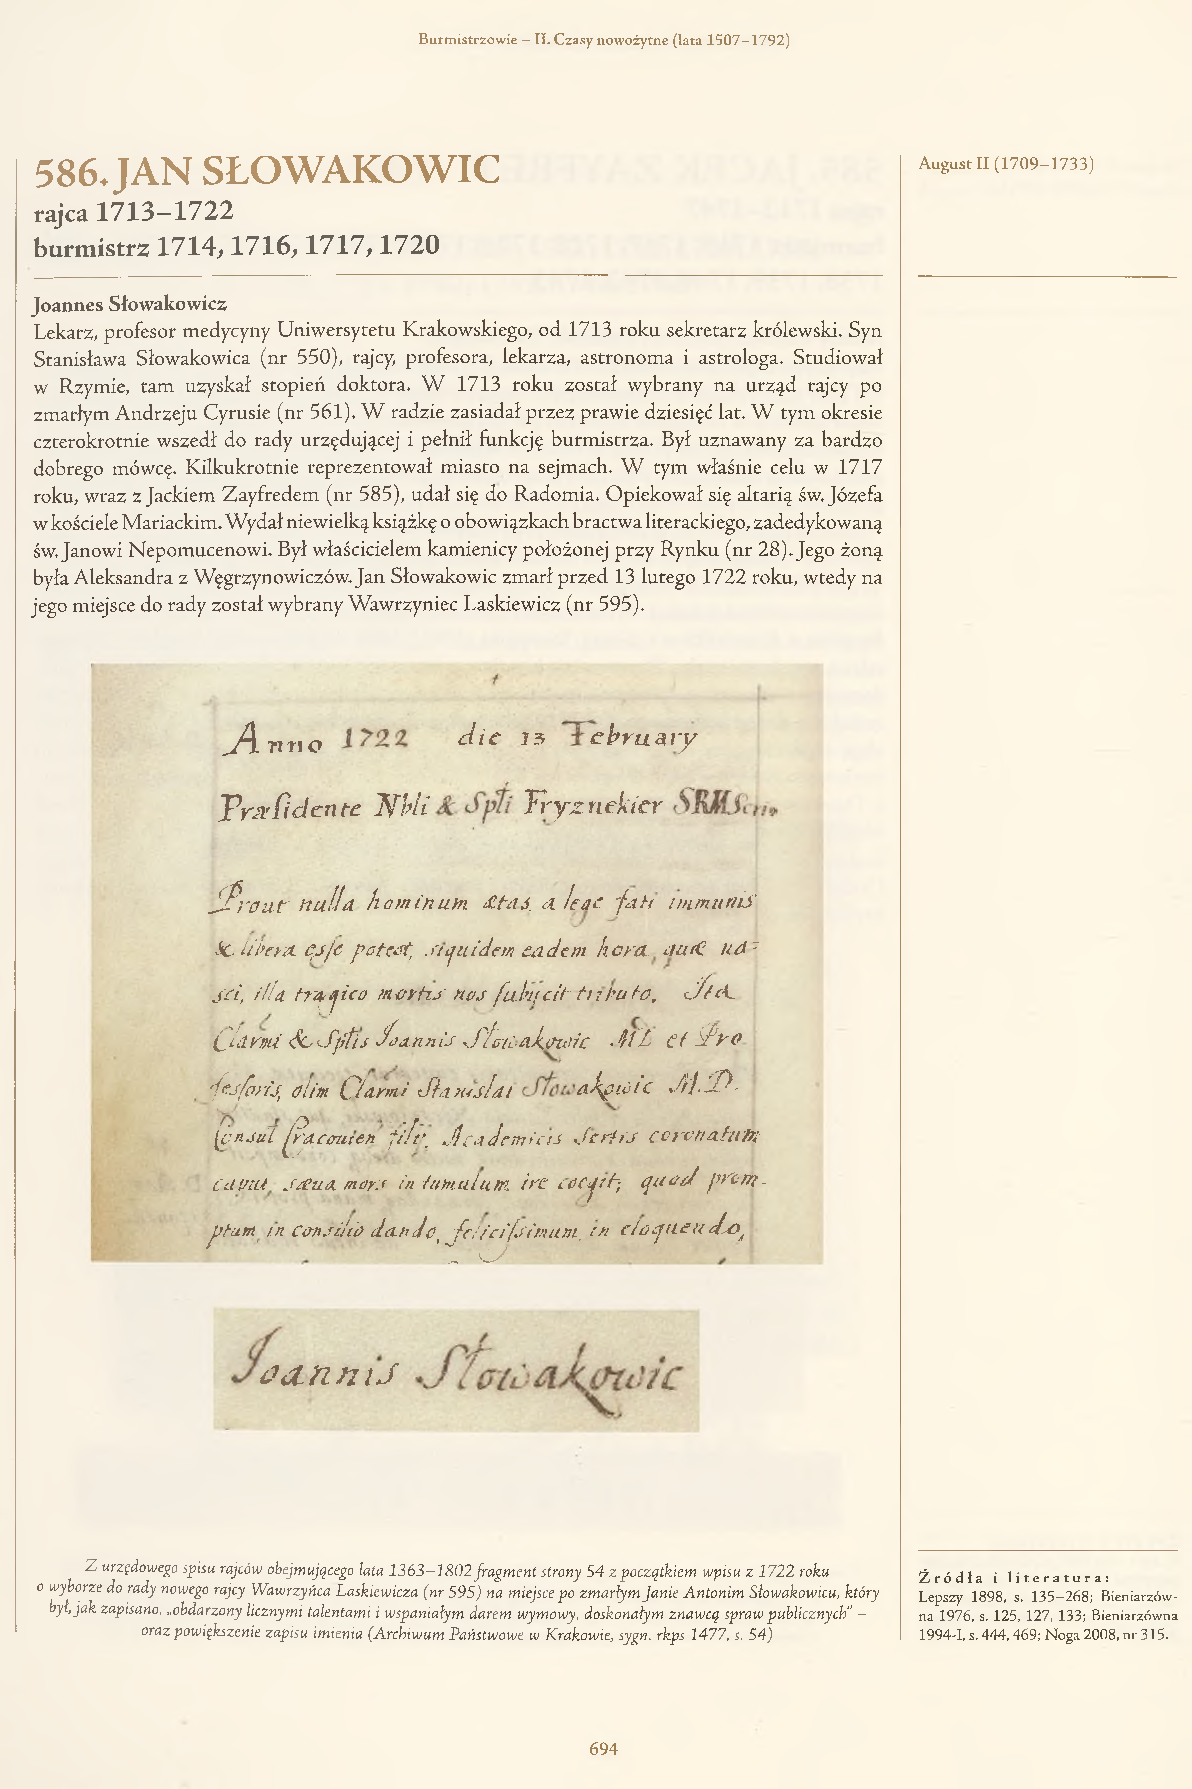 Burmistrzowie – II. Czasy nowożytne (lata 1507–1792)
586. JAN SŁOWAKOWIC
rajca 1713–1722
burmistrz 1714, 1716, 1717, 1720
August II (1709–1733)
Joannes Słowakowicz
Lekarz, profesor medycyny Uniwersytetu Krakowskiego, od 1713 roku sekretarz królewski. Syn
Stanisława Słowakowica (nr 550), rajcy, profesora, lekarza, astronoma i astrologa. Studiował
w Rzymie, tam uzyskał stopień doktora. W 1713 roku został wybrany na urząd rajcy po
zmarłym Andrzeju Cyrusie (nr 561). W radzie zasiadał przez prawie dziesięć lat. W tym okresie
czterokrotnie wszedł do rady urzędującej i pełnił funkcję burmistrza. Był uznawany za bardzo
dobrego mówcę. Kilkukrotnie reprezentował miasto na sejmach. W tym właśnie celu w 1717
roku, wraz z Jackiem Zayfredem (nr 585), udał się do Radomia. Opiekował się altarią św. Józefa
w kościele Mariackim. Wydał niewielką książkę o obowiązkach bractwa literackiego, zadedykowaną
św. Janowi Nepomucenowi. Był właścicielem kamienicy położonej przy Rynku (nr 28). Jego żoną
była Aleksandra z Węgrzynowiczów. Jan Słowakowic zmarł przed 13 lutego 1722 roku, wtedy na
jego miejsce do rady został wybrany Wawrzyniec Laskiewicz (nr 595).
Anno 1722 die 13 February
Præsidente Nbli & Sptli Fryznekier SRM
Prout nulla hominum ætas a lege fati immunis
& libera esse potest, siquidem eadem hora, quæ na=
sci, illa tragico mortis nos subijcit tributo. Ita
Clarmi & Sptlis Joannis Słowakowic MD et Pro
fessoris, olim Clarmi Stanislai Słowakowic M.D.
Consul Cracouien filij, Academicis Sertis coronatum
caput, sæua mors in tumulum ire coegit, quod prom-
ptum in consilio dando, felicissimum in eloquendo,
Joannis Słowakowic
Z urzędowego spisu rajców obejmującego lata 1363–1802 fragment strony 54 z początkiem wpisu z 1722 roku
o wyborze do rady nowego rajcy Wawrzyńca Laskiewicza (nr 595) na miejsce po zmarłym Janie Antonim Słowakowicu, który
był, jak zapisano, „obdarzony licznymi talentami i wspaniałym darem wymowy, doskonałym znawcą spraw publicznych" –
oraz powiększenie zapisu imienia (Archiwum Państwowe w Krakowie, sygn. rkps 1477, s. 54)
Źródła i literatura:
Lepszy 1898, s. 135–268; Bieniarzów-
na 1976, s. 125, 127, 133; Bieniarzówna
1994-I, s. 444, 469; Noga 2008, nr 315.
694